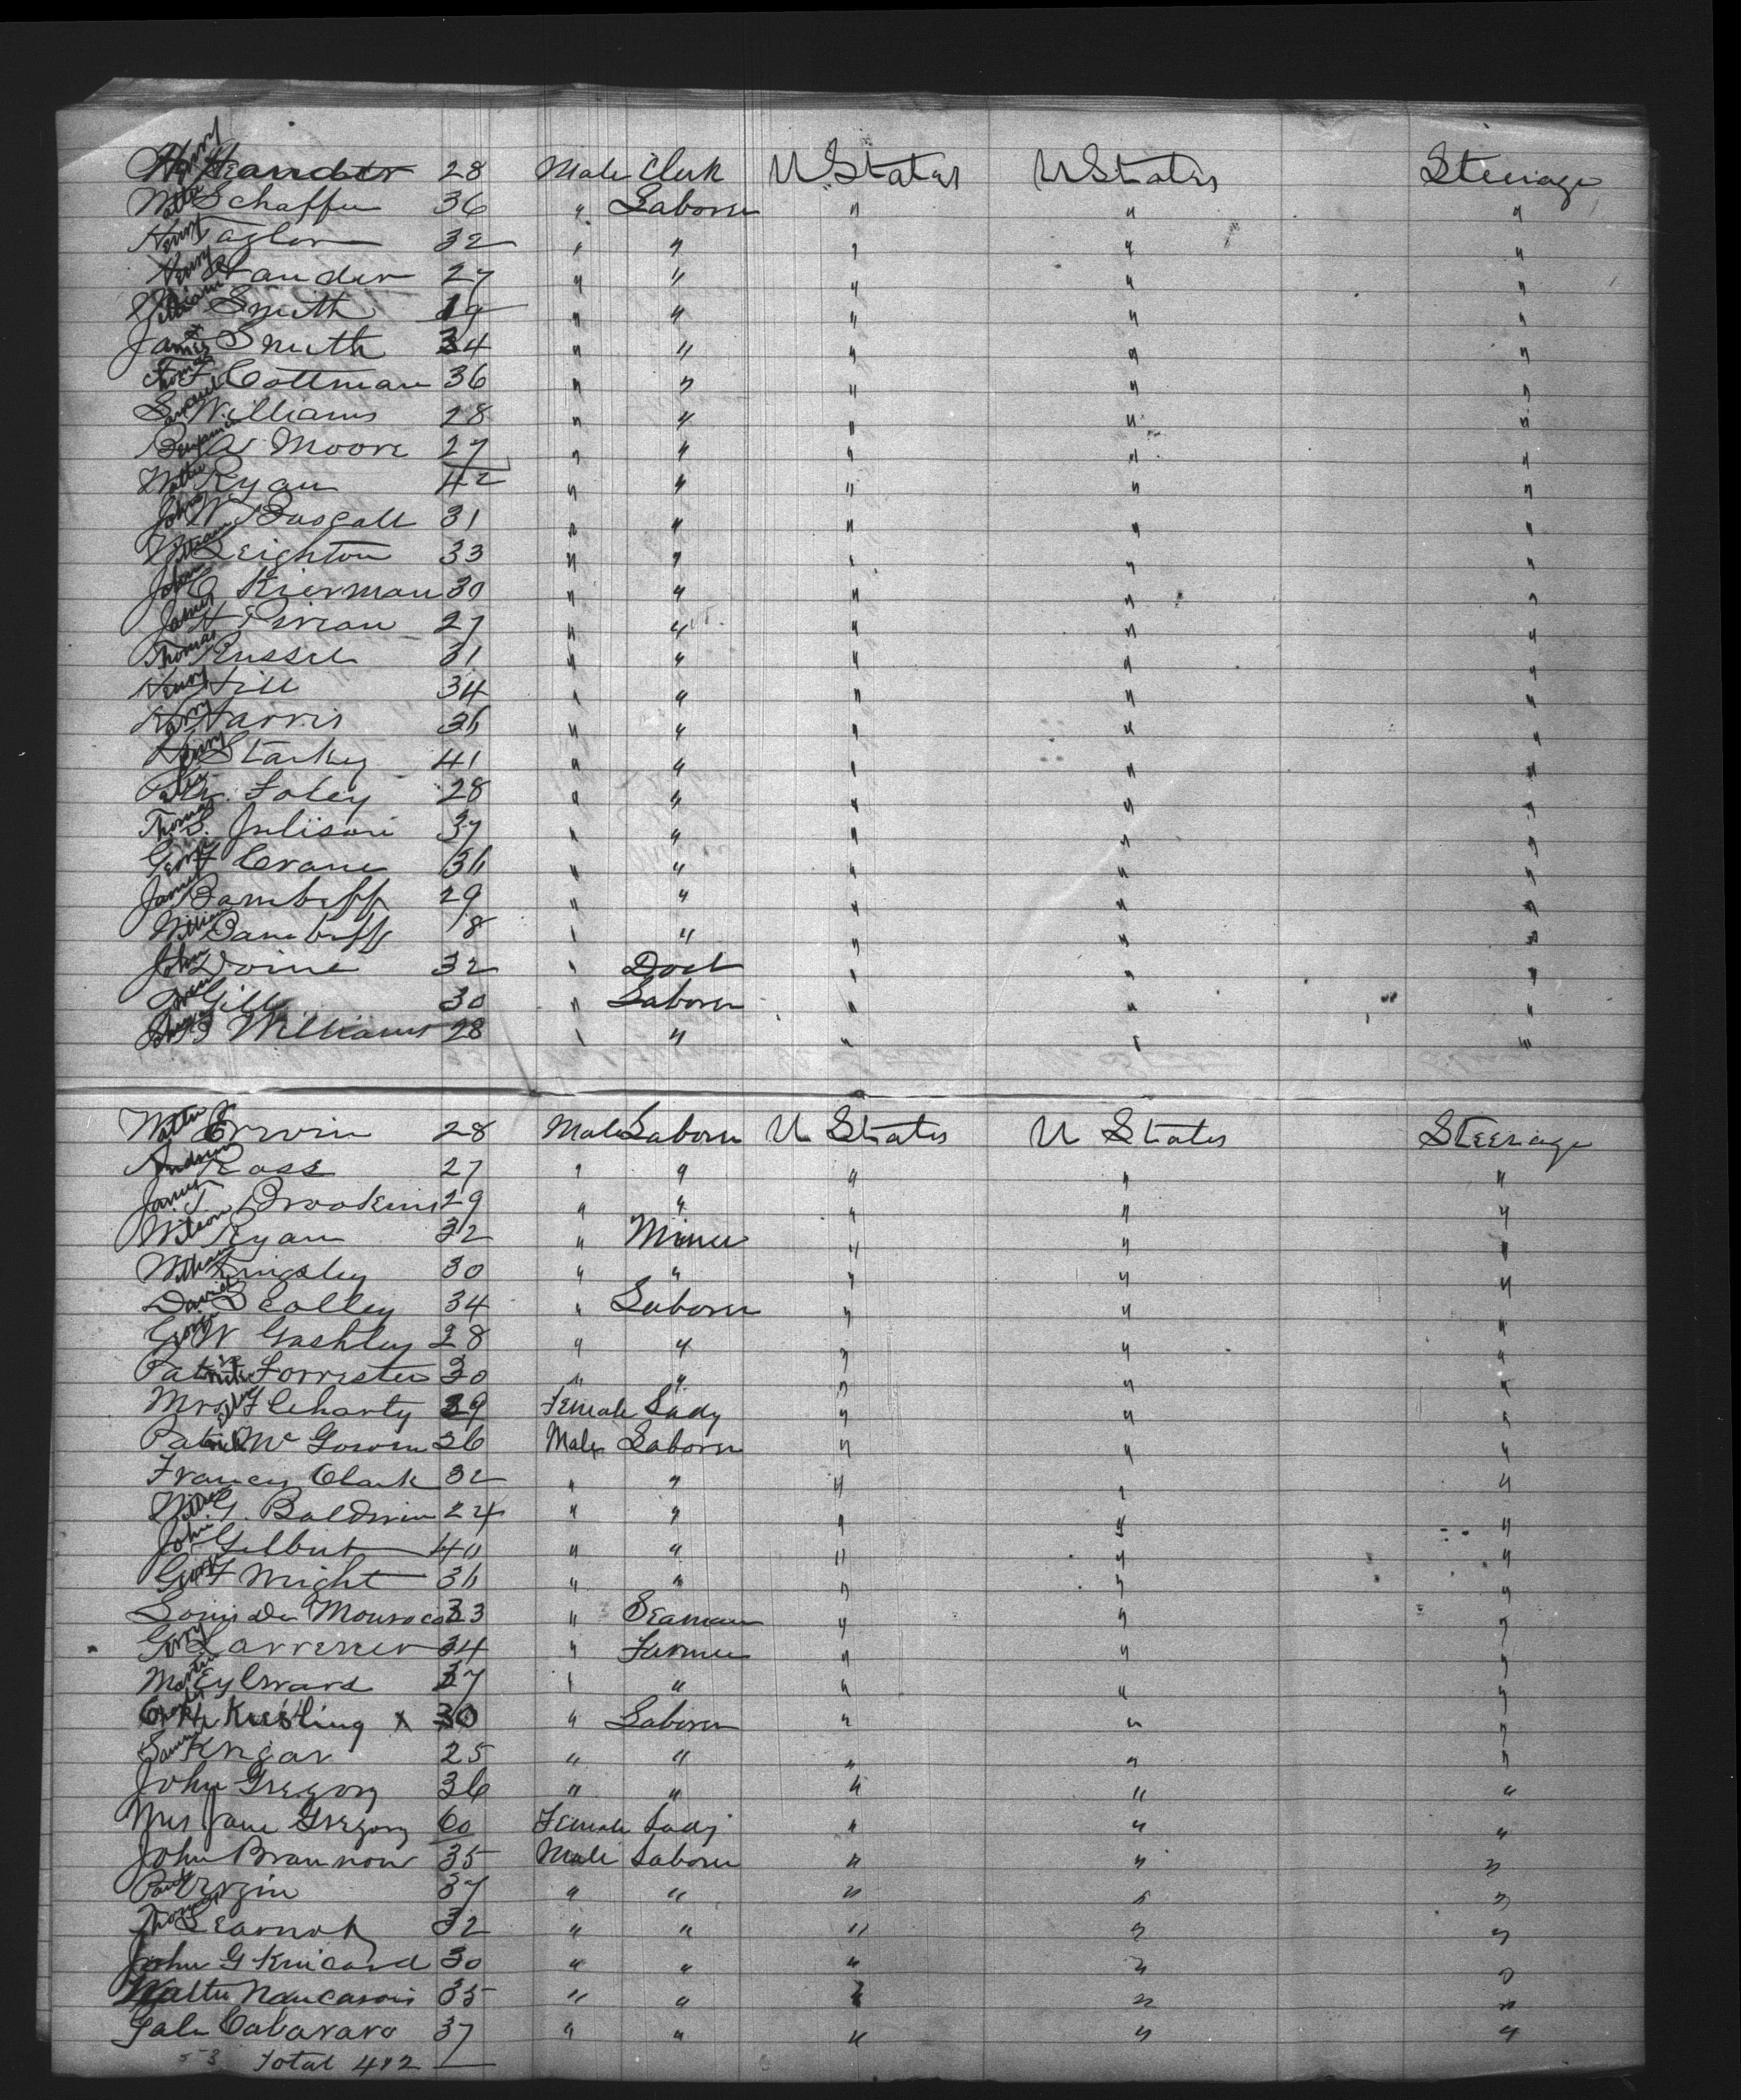 Harry 28 Male Clerk U States U States Steerage
Walter Schaffer 36 " Laborer " " "
Henry Taylor 32 " " " " "
Henry Sander 27 " " " " "
William Smith 19 " " " " "
James Smith 34 " " " " "
Thomas F Cottman 36 " " " " "
Samuel Williams 28 " " " " "
Benjamin W Moore 27 " " " " "
Walter Ryan 42 " " " " "
John W Bascall 31 " " " " "
William Leighton 33 " " " " "
John C Kierman 30 " " " " "
James H 27 " " " " "
Thomas Russel 31 " " " " "
Henry Hill 34 " " " " "
Harry Harris 36 " " " " "
Henry Starkey 41 " " " " "
Foley 28 " " " " "
Thomas S. Julison 37 " " " " "
George F Crane 36 " " " " "
James Bamboff 29 " " " " "
William Bamboff 18 " " " " "
John Doine 32 " Doct " " "
Gill 30 " Laborer " " "
Williams 28 " " " " "
Walter Erwin 28 Male Laborer U States U States Steerage
Andrew Ross 27 " " " " "
James T Brookins 29 " " " " "
Wilson Ryan 32 " Miner " " "
William Kingsley 30 " " " " "
David Scolley 34 " Laborer " " "
George W Gashley 28 " " " " "
Patrick Forrester 30 " " " " "
Mrs Ellen Fleharty 29 Female Lady " " "
Patrick Mc Gowen 26 Male Laborer " " "
Francis Clark 32 " " " " "
G. Baldwin 24 " " " " "
John Gilbert 40 " " " " "
George F Wright 36 " " " " "
Louis De 33 " Seaman " " "
Gerry Larrener 34 " Farmer " " "
Martin Eylward 37 " " " " "
Charles H Kiesling x 30 " Laborer " " "
Saml Krigar 25 " " " " "
John Gregory 36 " " " " "
Mrs Jane Gregory 60 Female Lady " " "
John Brannow 35 Male Laborer " " "
Paul 37 " " " " "
Thomas 32 " " " " "
John G Kincard 30 " " " " "
Walter 35 " " " " "
Cabavaro 37 " " " " "
53 Total 492